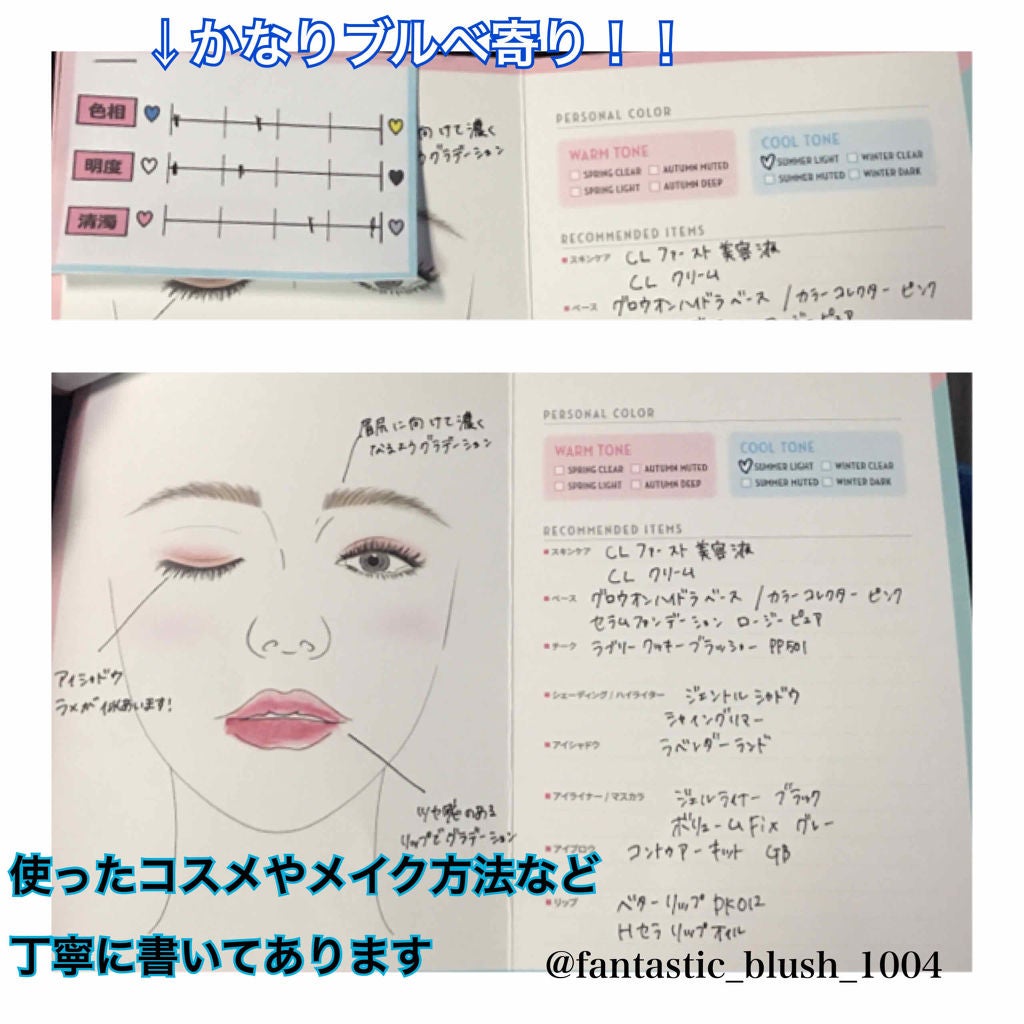 ↓かなりブルベ寄り！！
色相
明度
清濁
向けて濃く
うグラデーション
PERSONAL COLOR
WARM TONE
SPRING CLEAR AUTUMN MUTED
SPRING LIGHT AUTUMN DEEP
COOL TONE
SUMMER LIGHT WINTER CLEAR
SUMMER MUTED WINTER DARK
RECOMMENDED ITEMS
スキンケア CLファースト美容液
CL クリーム
ベース グロウオンハイドラベース / カラーコレクター ピンク
眉尻に向けて濃く
なるようグラデーション
アイシャドウ
ラメが似あいます!
ツヤ感のある
リップでグラデーション
PERSONAL COLOR
WARM TONE
SPRING CLEAR AUTUMN MUTED
SPRING LIGHT AUTUMN DEEP
COOL TONE
SUMMER LIGHT WINTER CLEAR
SUMMER MUTED WINTER DARK
RECOMMENDED ITEMS
スキンケア CLファースト美容液
CL クリーム
ベース グロウオンハイドラベース / カラーコレクター ピンク
セラムファンデーション ロージーピュア
チーク ラブリークッキーブラッシャー PP501
シェーディング / ハイライター ジェントルシャドウ
シャイングリマー
アイシャドウ ラベンダーランド
アイライナー / マスカラ ジェルライナー ブラック
ボリュームFix グレー
アイブロウ コントゥアーキット GB
リップ ベターリップ PK012
Hセラ リップオイル
使ったコスメやメイク方法など
丁寧に書いてあります
@fantastic_blush_1004